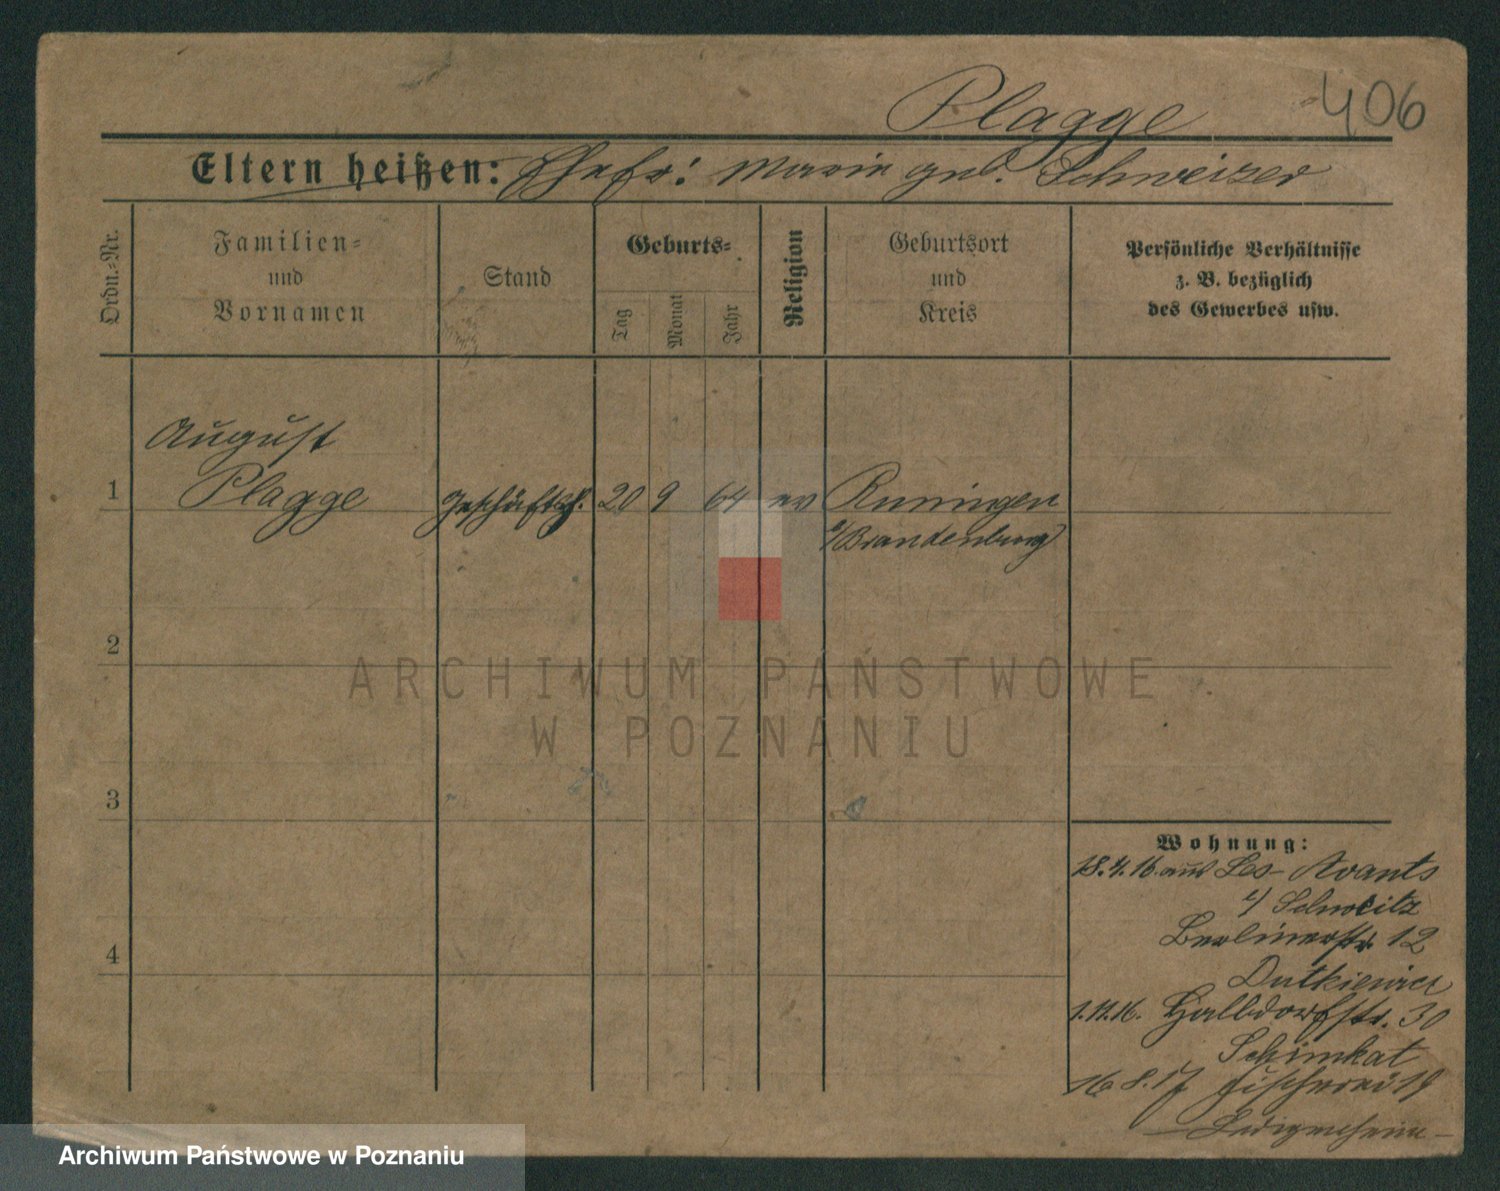 Plagge 406
Eltern heißen: Ehefr: Marie geb. Schweizer
Ordn.-Nr.
Familien-
und
Vornamen
Stand
Geburts-
Tag
Monat
Jahr
Religion
Geburtsort
und
Kreis
Persönliche Verhältnisse
z. B. bezüglich
des Gewerbes usw.
August
1 Plagge Geschäftsf. 20 9 64 ev
i/Brandenburg
2
ARCHIWUM PAŃSTWOWE
W POZNANIU
3
Wohnung:
18.4.16. aus Les-Avants
i/ Schweitz
Berlinerstr. 12
4
Dutkiewicz
1.11.16. Halbdorfstr. 30
Schimkat
16.8.17 Fischerei 19
Ledigenheim
Archiwum Państwowe w Poznaniu